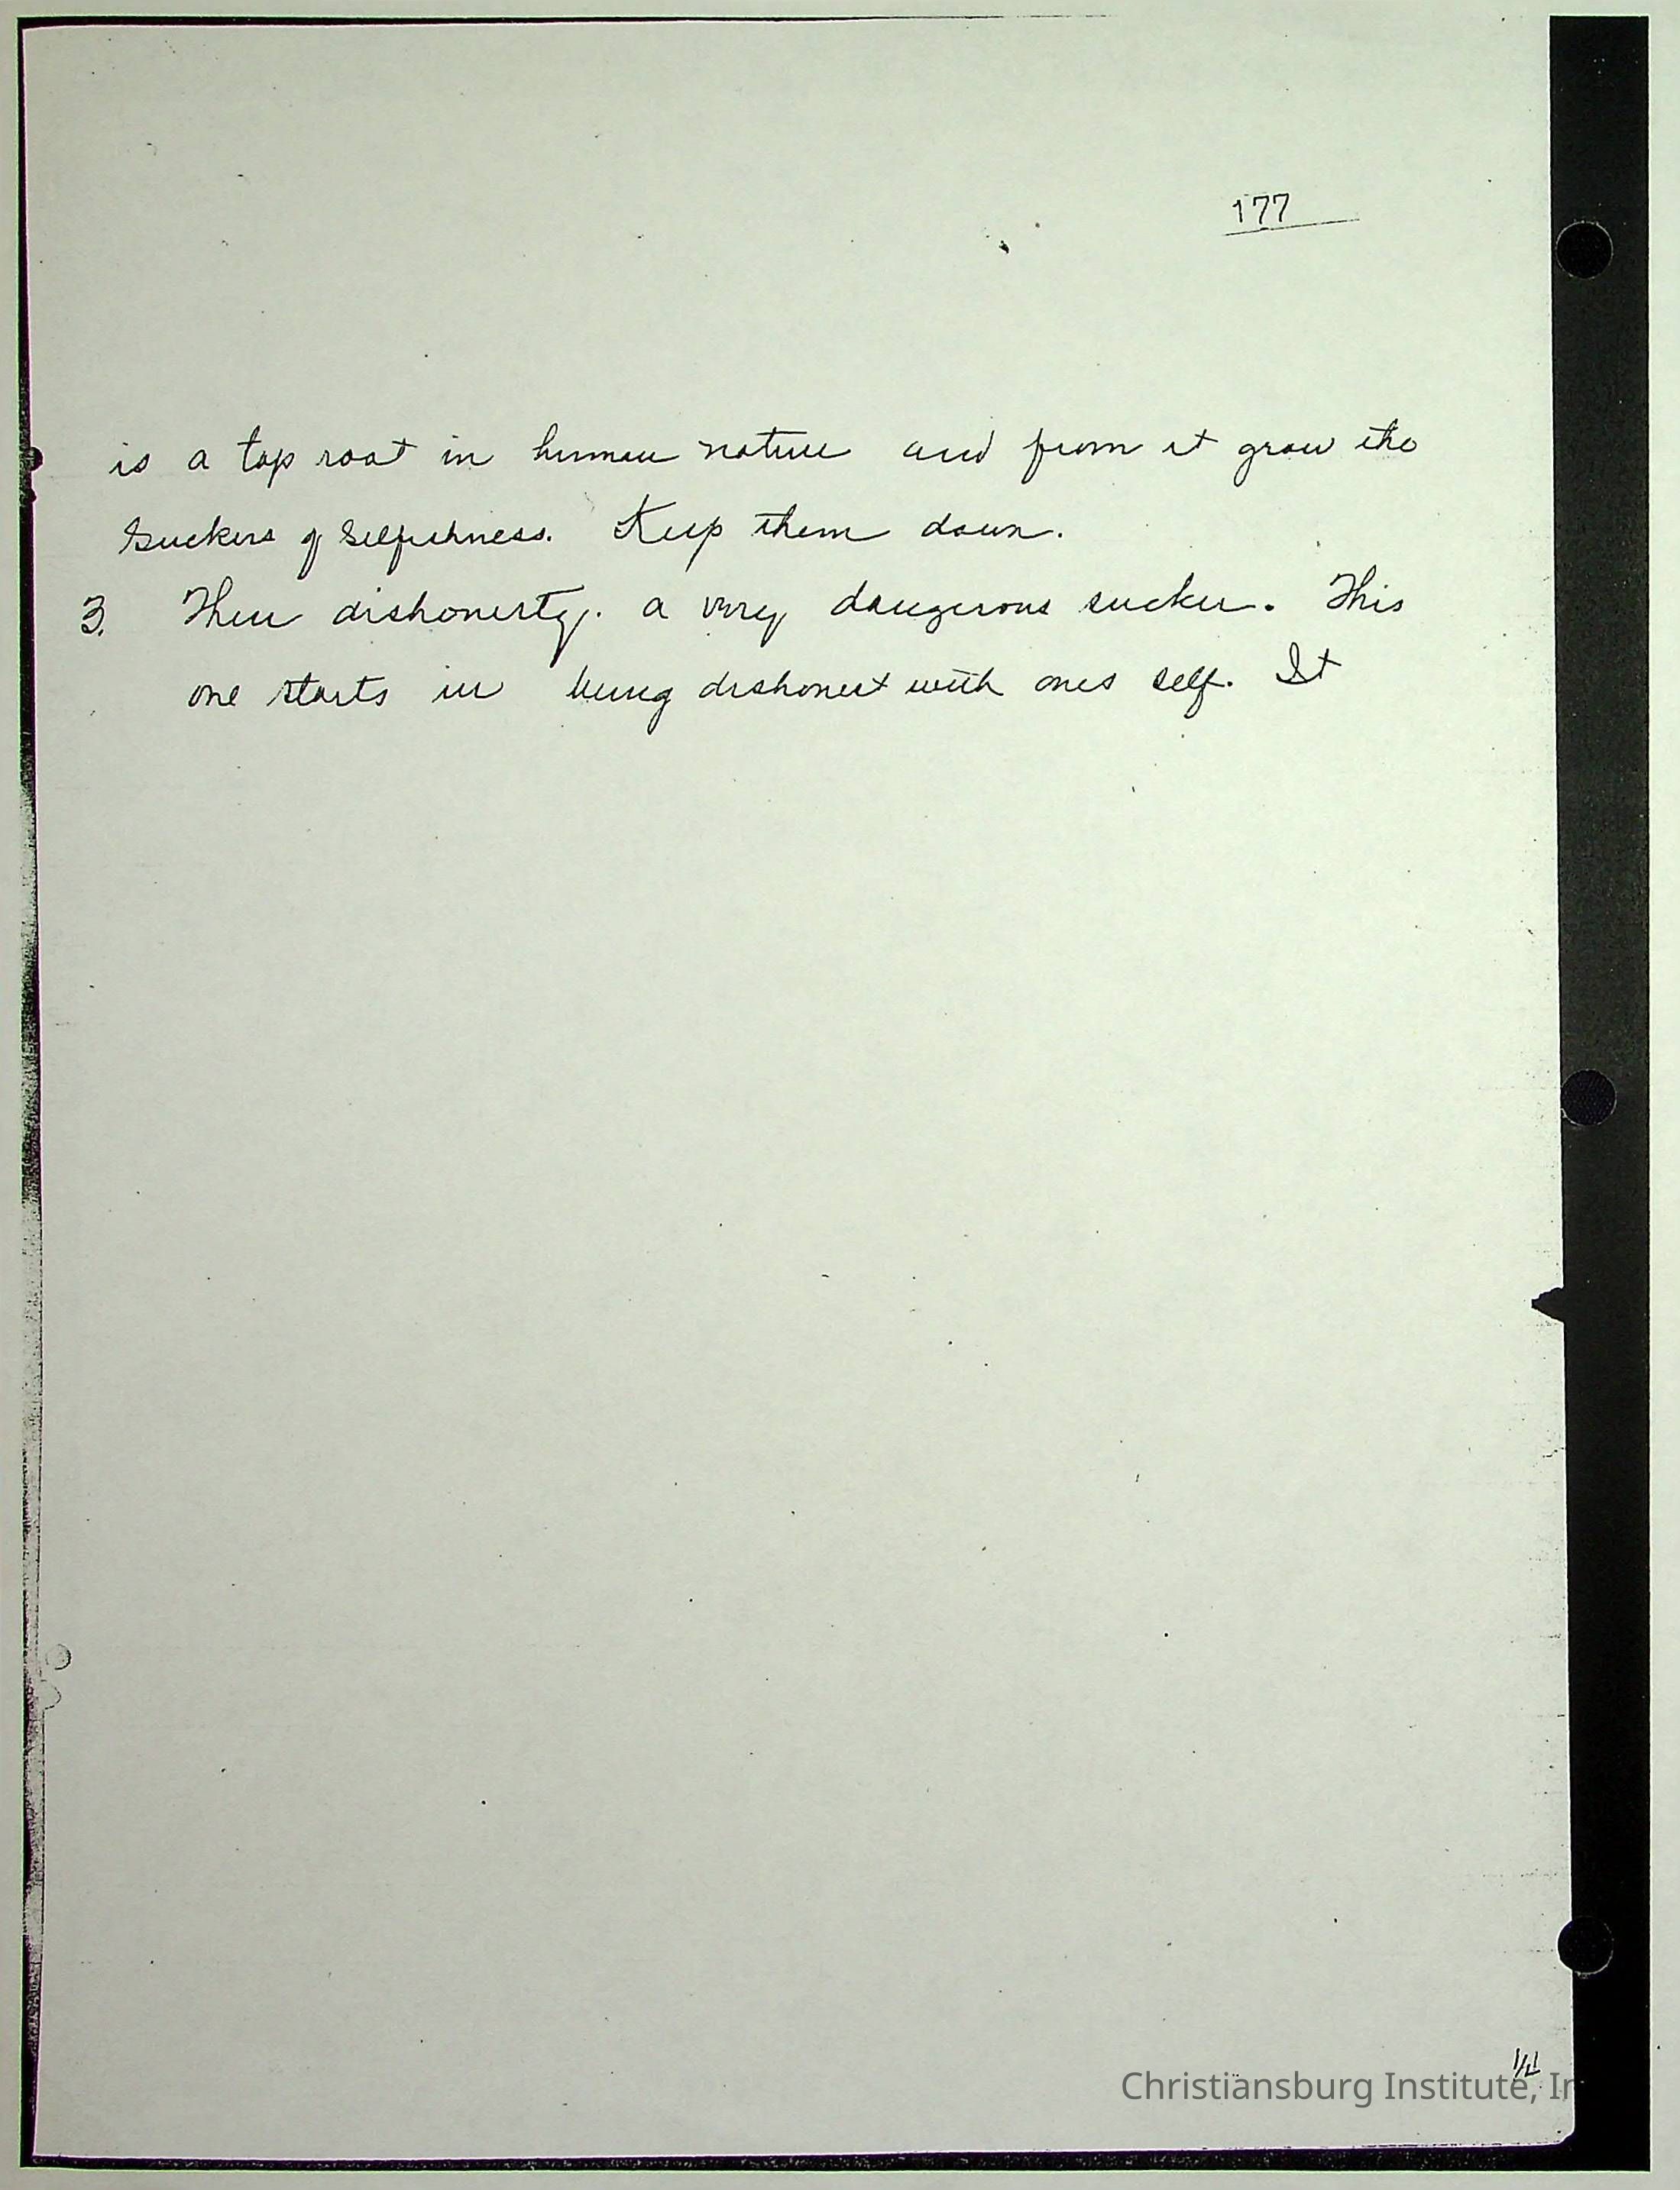 177
is a tap root in human nature and from it grow the
Suckers of Selfishness. Keep them down.
3. Then dishonesty. a very dangerous sucker. This
one starts in being dishonest with ones self. It
Christiansburg Institute, In